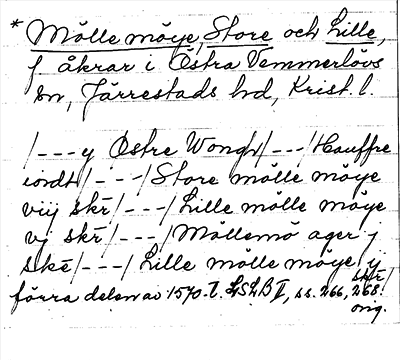 * Mölle möye, Store och Lille,
f åkrar i Östra Vemmerlövs
sn, Järrestads hd, Krist. l.
/---y Östre Wongh/---/Hauffre
iordt/---/Store mölle möye
viij skr/---/Lille mölle möye
vj skr/---/Möllemö ager j
ske/---/Lille mölle möye ij
skr/
förra delen av 1570-t. LSLB II, ss. 266, 268.
orig.